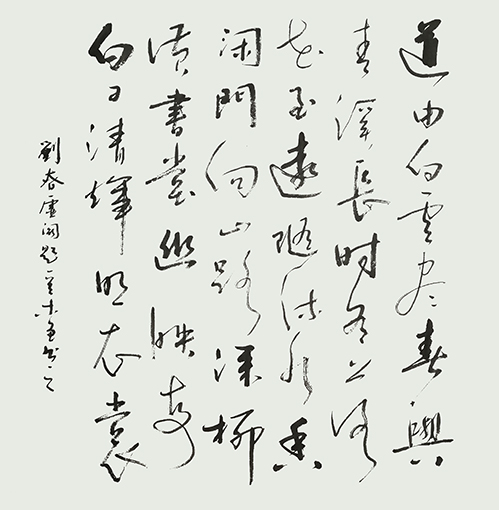 道由白雲盡春與
青溪長时有落
花至遠随流水香
闲門向山路深柳
讀書堂幽映每
白日清輝照衣裳
劉昚虛闕題一首書之